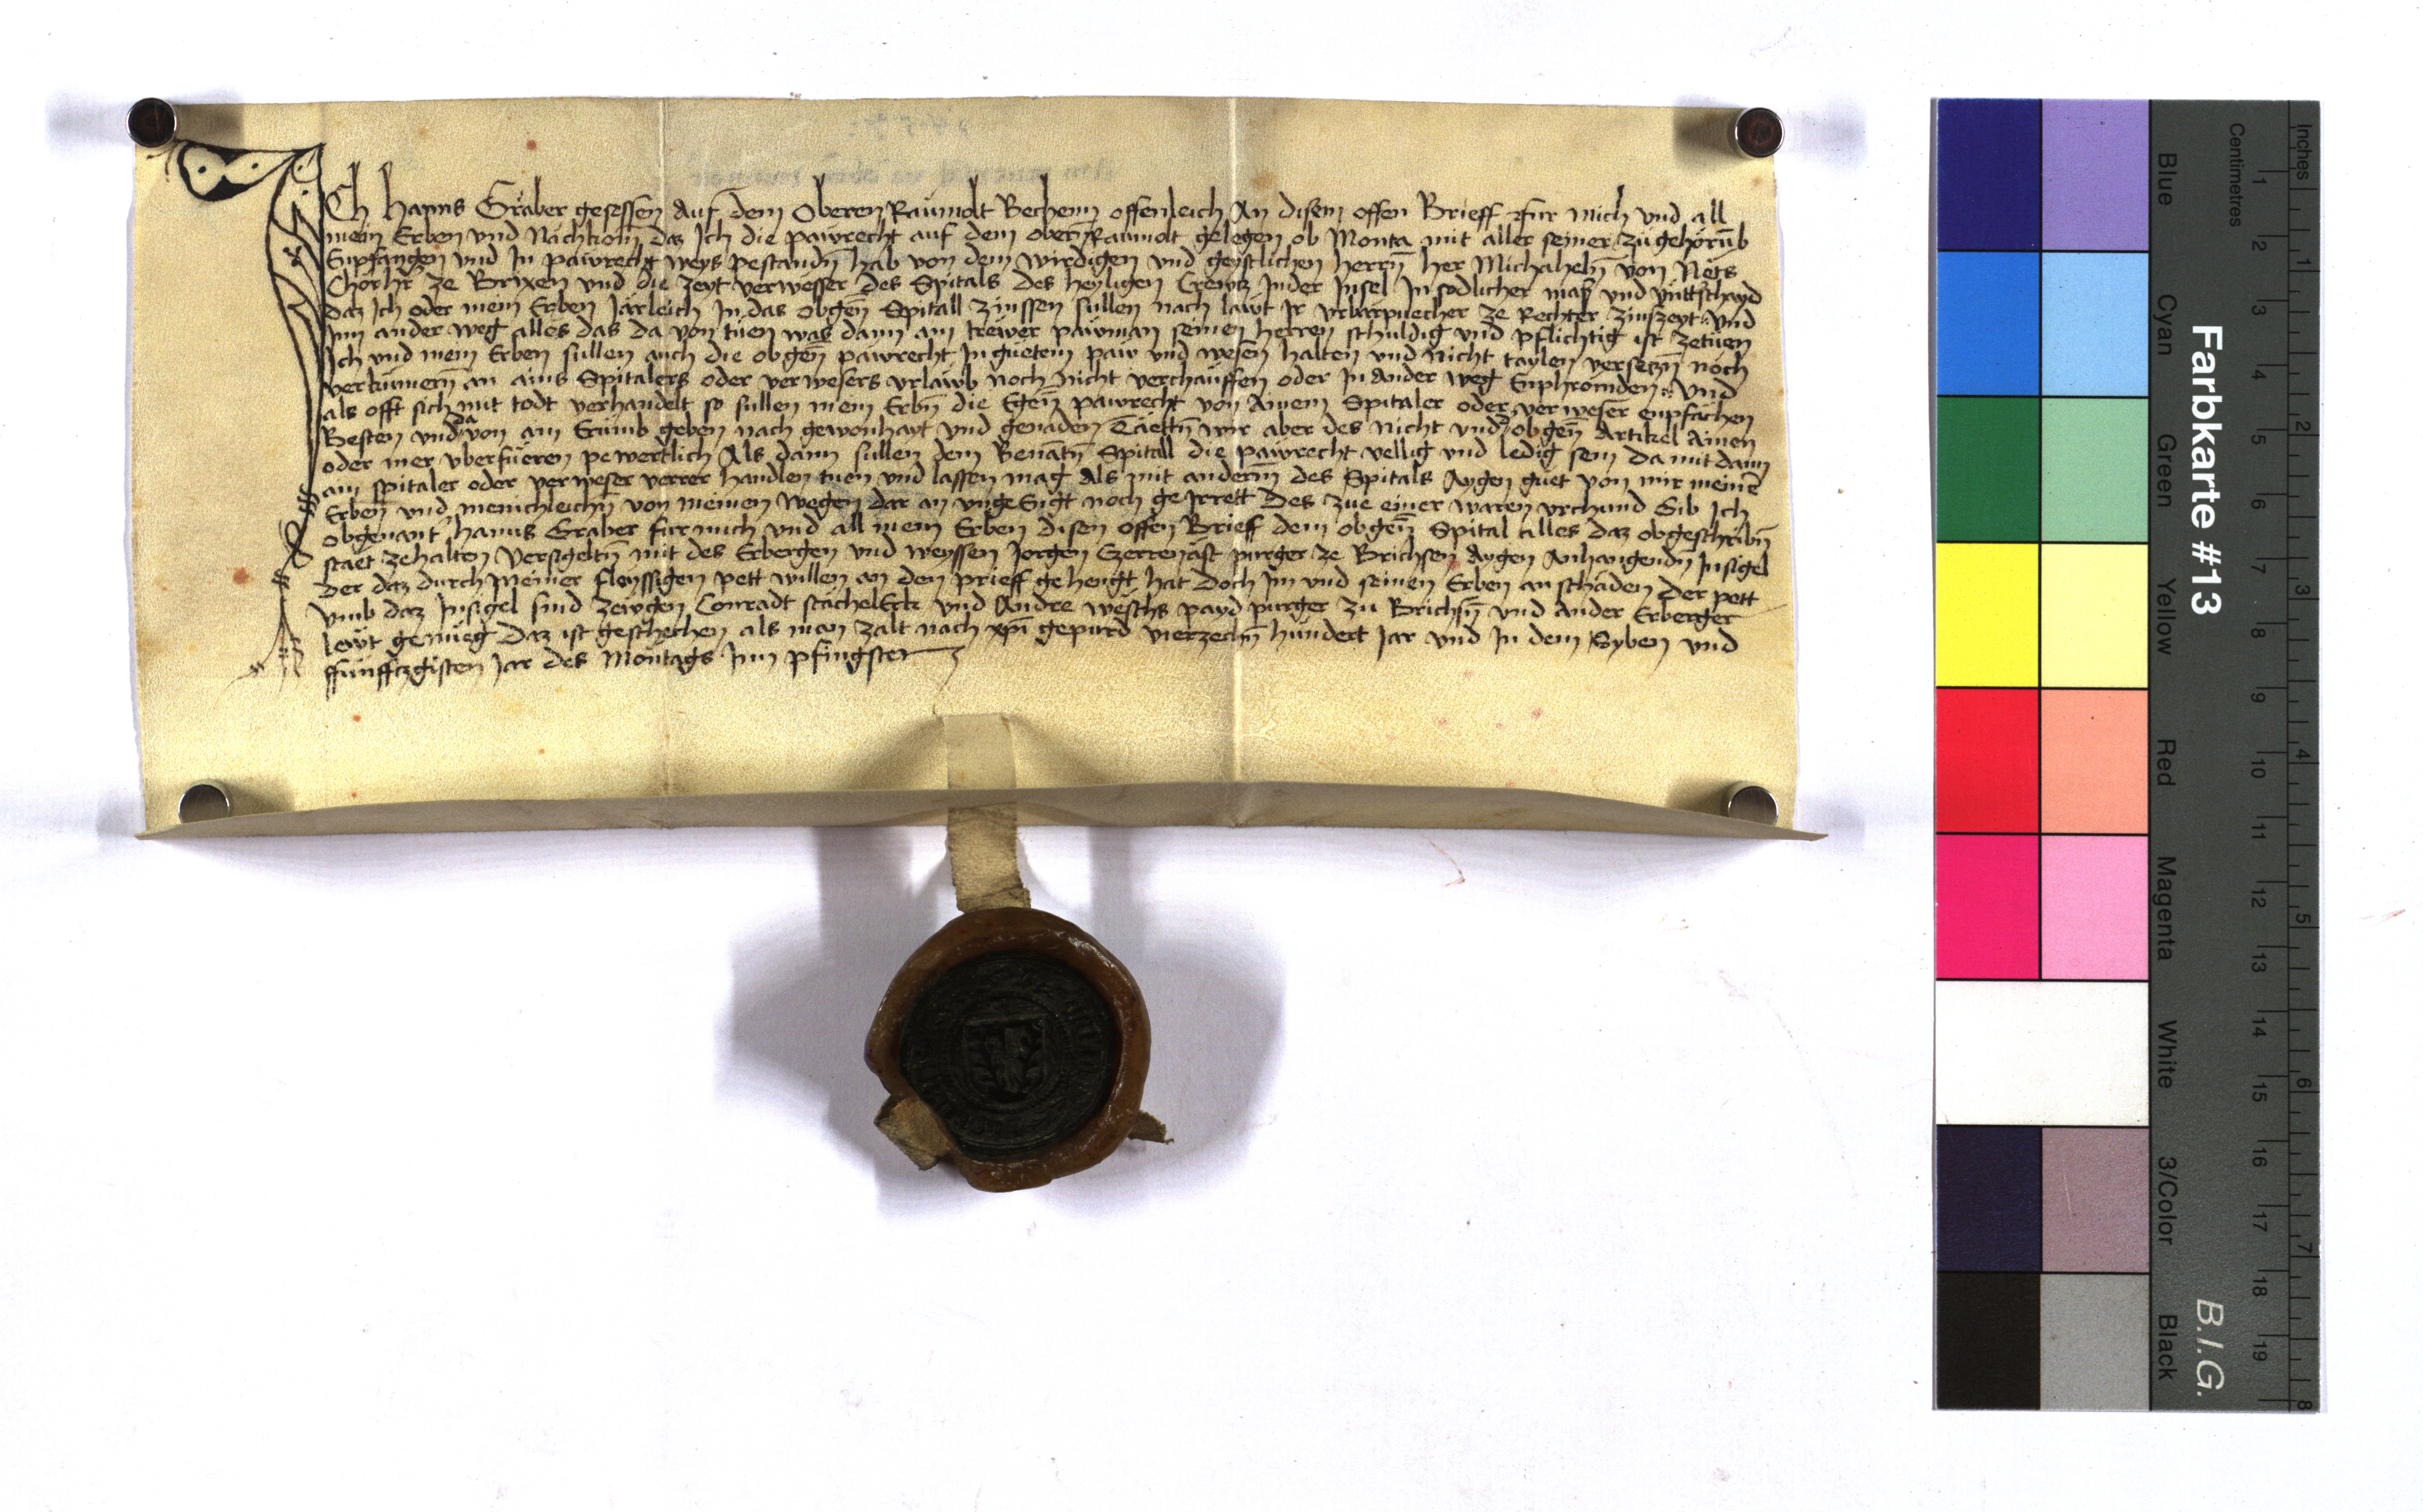 ICh Hanns Graber gesessen auf dem Oberen Raumolt Bechenn offenleich An disem offen Brieff fur mich vnd all
mein Erben vnd Nachkom̄ daz Ich die pawrecht auf dem obern̄ Raumolt gelegen ob Monta mit aller seiner zugehorūb
Enpfangen vnd In pawrecht weys pestandn̄ hab von dem wirdigen vnd geystlichen herrn̄ her Michaheln̄ von Nëts
Chorhr̄ ze Brixen vnd die zeyt verwesser des Spitals des heyligen Crewtz Inder Insel In sodlicher maß vnd vnttschayd
daz Ich oder mein Erben Järleich In das obgen̄ Spitall zinssen sullen nach lawt Ir vrbarpuecher ze Rechter zinszeyt Vnd
Inn ander weg alles das da von tuen was dann am trewer pawman seinen herren schuldig vnd pflichtig ist zetuen
Ich vnd mein Erben sullen auch die obgen̄ pawrecht In guetem paw vnd wesen halten vnd nicht taylen versetzn̄ noch
verkumern̄ an ains Spitalers oder verwesers vrlawb noch nicht verchauffen oder In ander weg Enphromden Vnd
als offt sich mit todt verhandelt so sullen mein Erbn̄ die Egen̄ pawrecht von Ainem Spitaler oder verweser enpfachen
Besten vnd da von ain Erung geben nach gewonhayt vnd genaden Täettn̄ wir aber des nicht vnd obgen̄ Artikel Ainen
oder mer vberfueren pewertlich Als dann sullen dem Benātn̄ Spitall die pawrecht vellig vnd ledig sein da mit dann
ain spitaler oder verweser verrer handlen tuen vnd lassen mag als mit anderm̄ des Spitals Aygen guet von mir meinē
Erben vnd menichleichn̄ von meinen wegen dar an vngeengt noch geIrrett Des zue einer waren vrchund Gib Ich
obgenant Hanns Graber fur mich vnd all mein Erben disen offen Brieff dem obgen̄ Spital alles daz obgeschribn̄
staet zehalten Versigeltn̄ mit des Erbergen vnd weyssen Jorgen Ezerrenast purger ze Brichsen Aygen Anhangendn̄ Insigel
Der daz durch meiner fleyssigen pett willen an den prieff gehengt hat doch Im vnd seinen Erben an schaden Der pett
vmb daz Insigel sind zewgen Conradt stächelErk vnd Andre weschs payd purger zu Brichsn̄ vnd ander Erberger
lewt genueg Daz ist geschechen als man zalt nach xpī gepurd vierzechn̄ hundert Jar vnd In dem Syben vnd
ffunfftzgisten Jar des Montags Inn pfingsten
Farbkarte #13
B.I.G.
Inches
Centimetres
Blue
Cyan
Green
Yellow
Red
Magenta
White
3/Color
Black
1 2 3 4 5 6 7 8 9 10 11 12 13 14 15 16 17 18 19
1 2 3 4 5 6 7 8